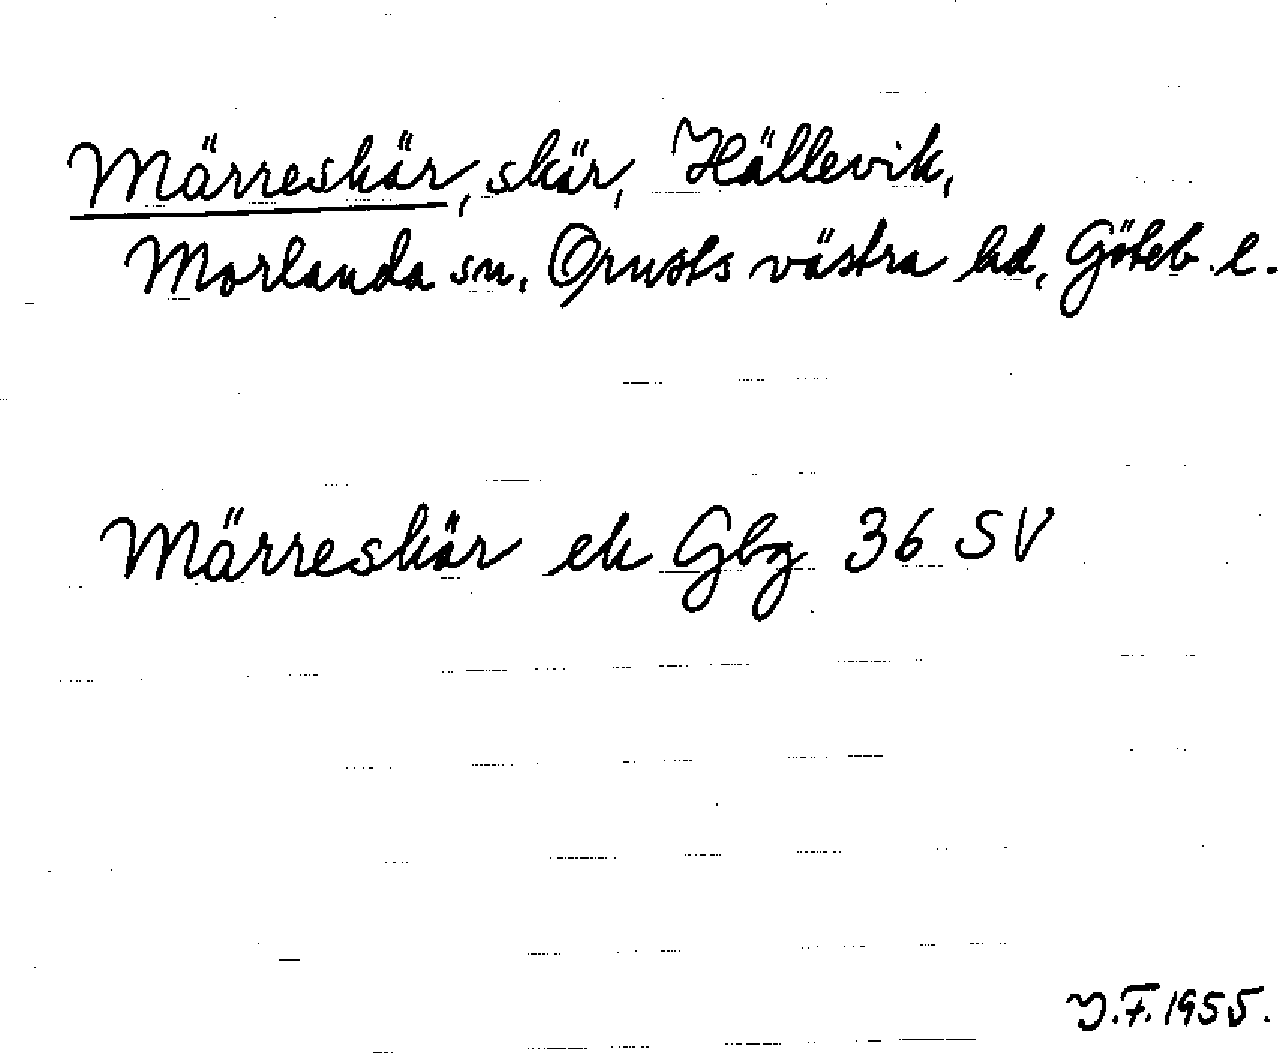 Märreskär, skär, Hällevik,
Morlanda sn, Orusts västra hd, Göteb. l.
Märreskär ek Gbg 36 SV
I.F. 1955.